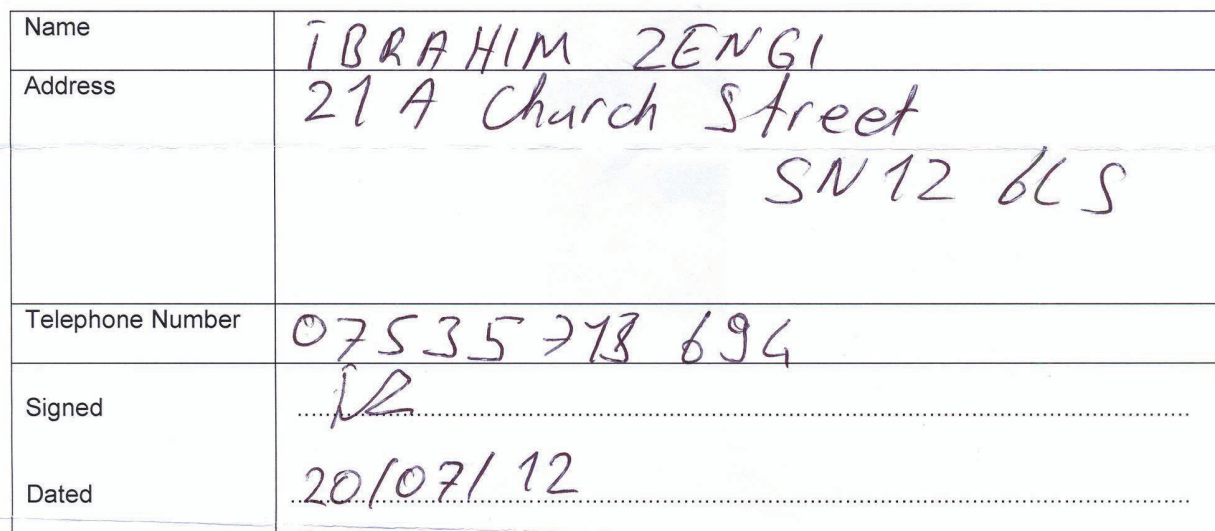 Name
İBRAHIM ZENGI
Address
21 A Church Street
SN12 6LS
Telephone Number
Signed
Dated
20/07/12